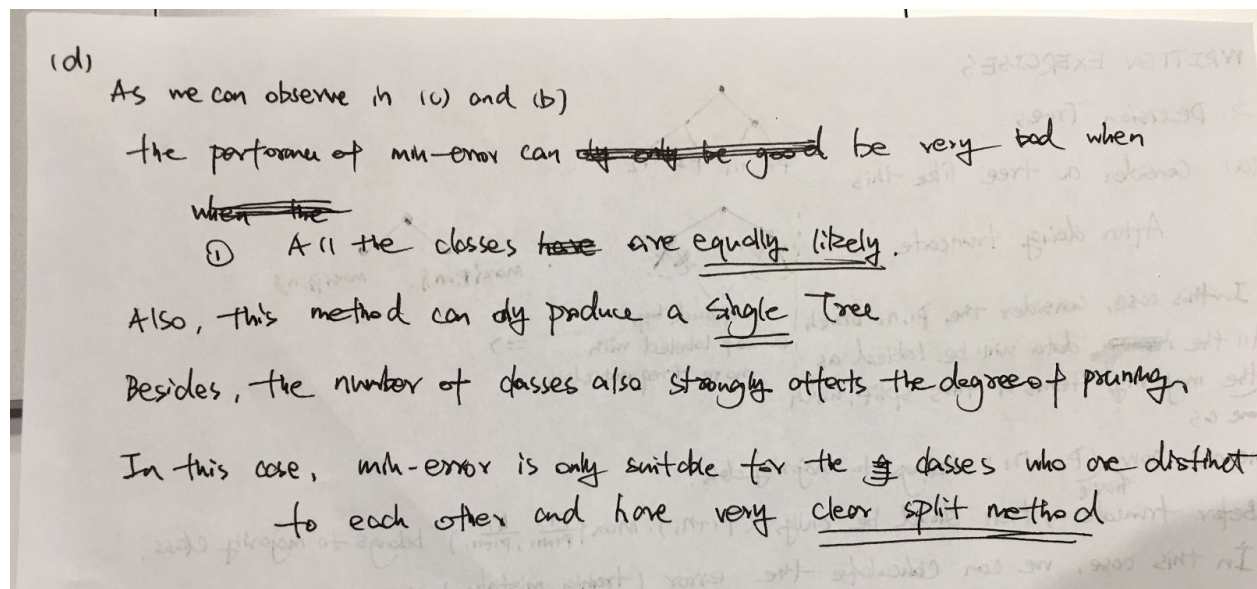 (d)
As we can observe in (c) and (b)
the performance of min-error can be very bad when
① All the classes are equally likely.
Also, this method can only produce a single Tree
Besides, the number of classes also strongly affects the degree of pruning.
In this case, min-error is only suitable for the classes who are distinct
to each other and have very clear split method